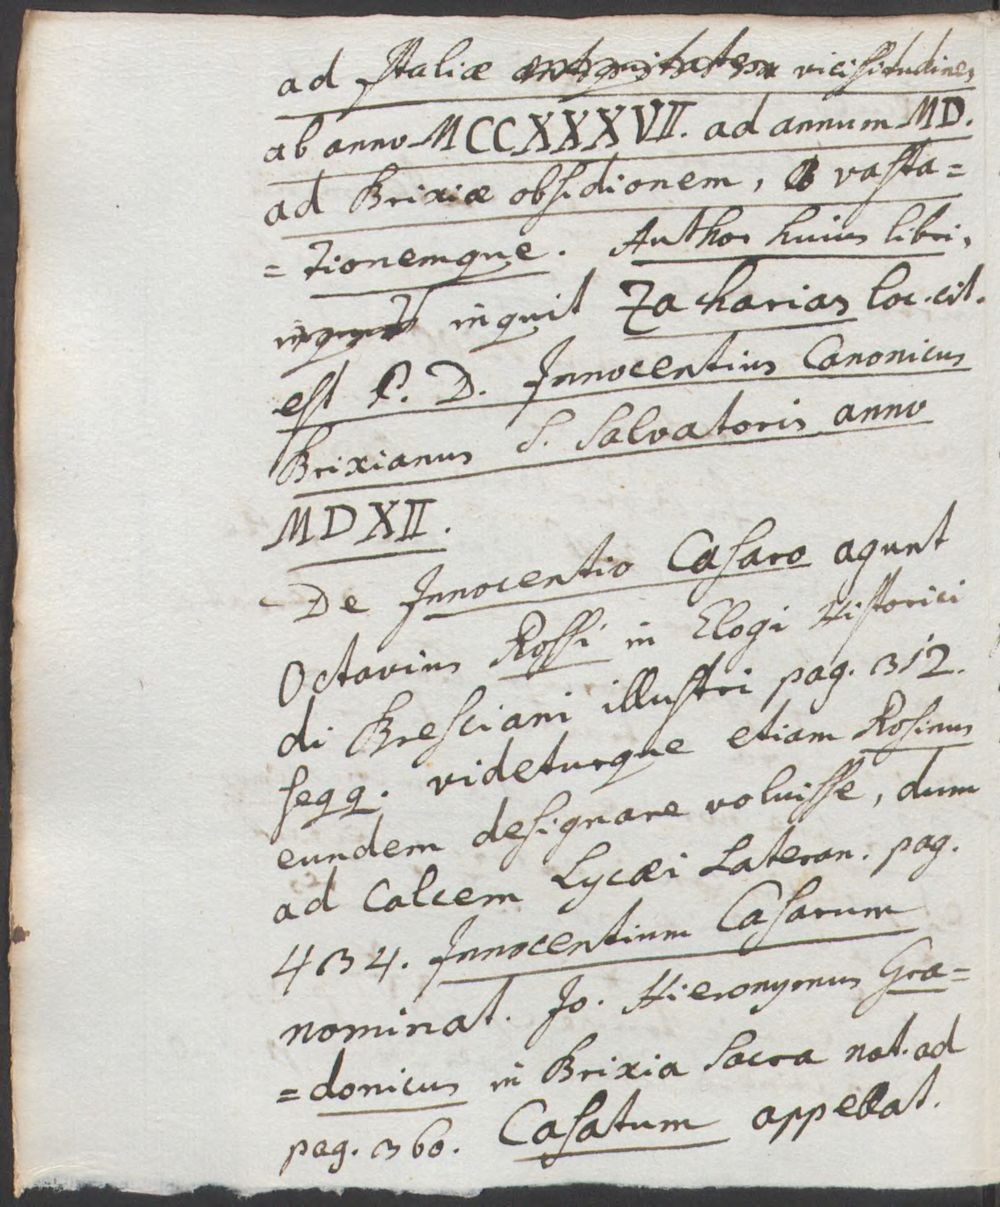 ad Italiæ vicissitudines
ab anno MCCXXXVII. ad annum MD.
ad Brixiæ obsidionem, & vasta=
=tionemque. Author huius libri,
inquit Zacharias loc. cit.
est P. D. Innocentius Canonicus
Brixianus S. Salvatoris anno
MDXII.
De Innocentio Casaro agunt
Octavius Rossi in Elogi Historici
di Bresciani illustri pag. 312.
seqq. videturque etiam Rosinus
eundem designare voluisse, dum
ad Calcem Lycæi Lateran. pag.
434. Innocentium Casarum
nominat. Jo. Hieronymus Gra=
=donicus in Brixia Sacra not. ad
pag. 360. Casatum appellat.